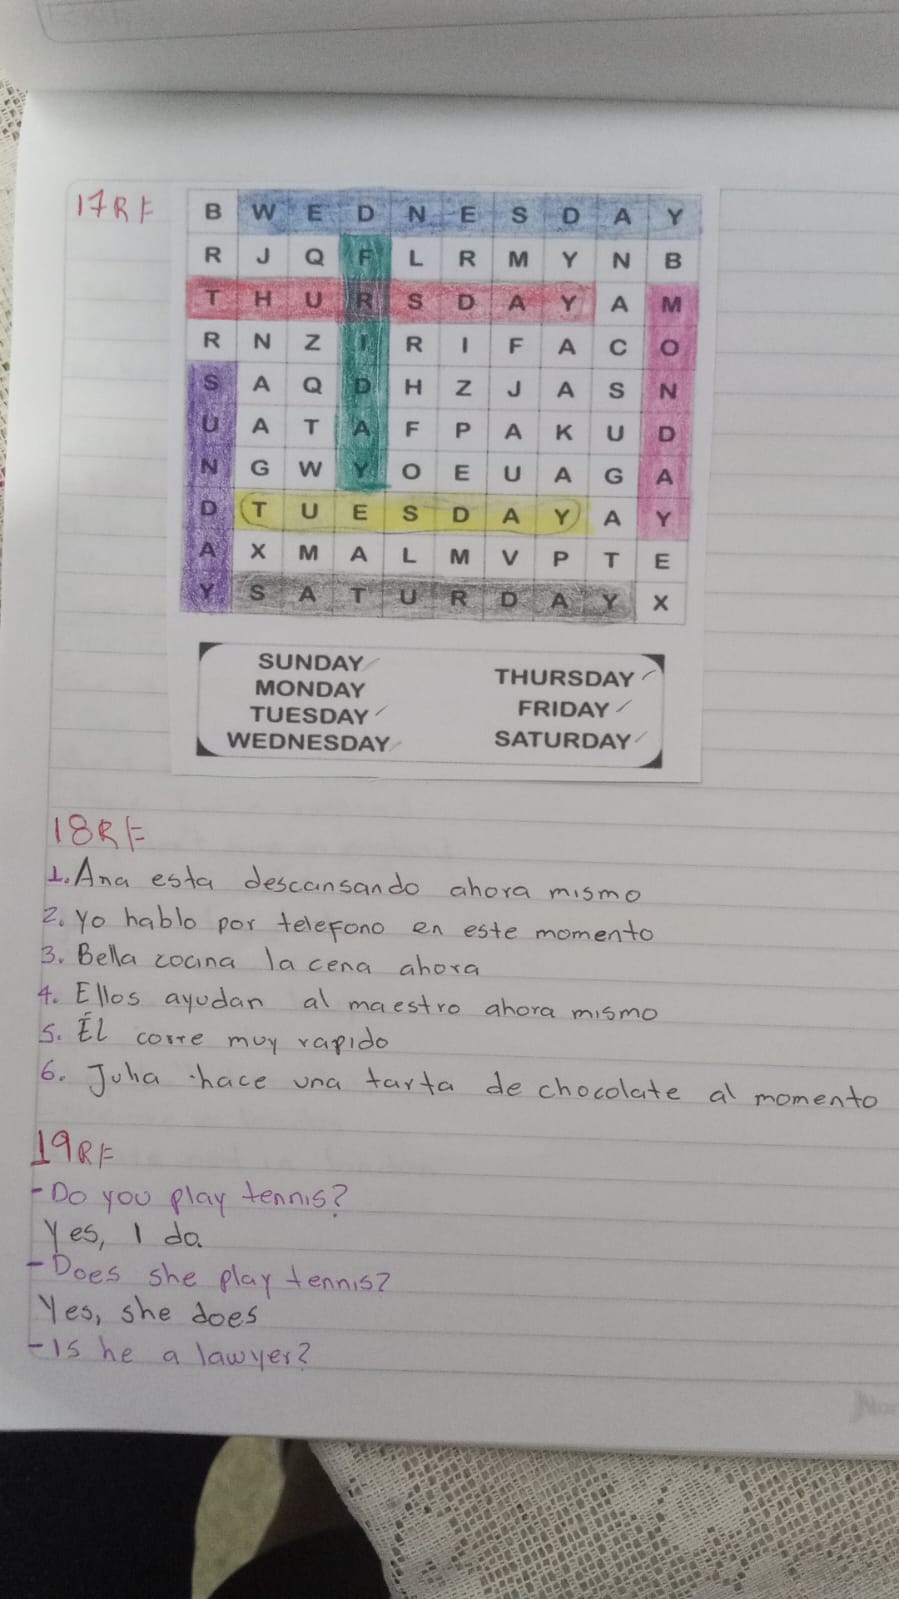 17RF
B W E D N E S D A Y
R J Q F L R M Y N B
T H U R S D A Y A M
R N Z I R I F A C O
S A Q D H Z J A S N
U A T A F P A K U D
N G W Y O E U A G A
D T U E S D A Y A Y
A X M A L M V P T E
Y S A T U R D A Y X
SUNDAY
MONDAY
TUESDAY
WEDNESDAY
THURSDAY
FRIDAY
SATURDAY
18RF
1. Ana esta descansando ahora mismo
2. Yo hablo por telefono en este momento
3. Bella cocina la cena ahora
4. Ellos ayudan al maestro ahora mismo
5. Él corre muy rapido
6. Julia hace una tarta de chocolate al momento
19RF
- Do you play tennis?
Yes, I do.
- Does she play tennis?
Yes, she does
- Is he a lawyer?